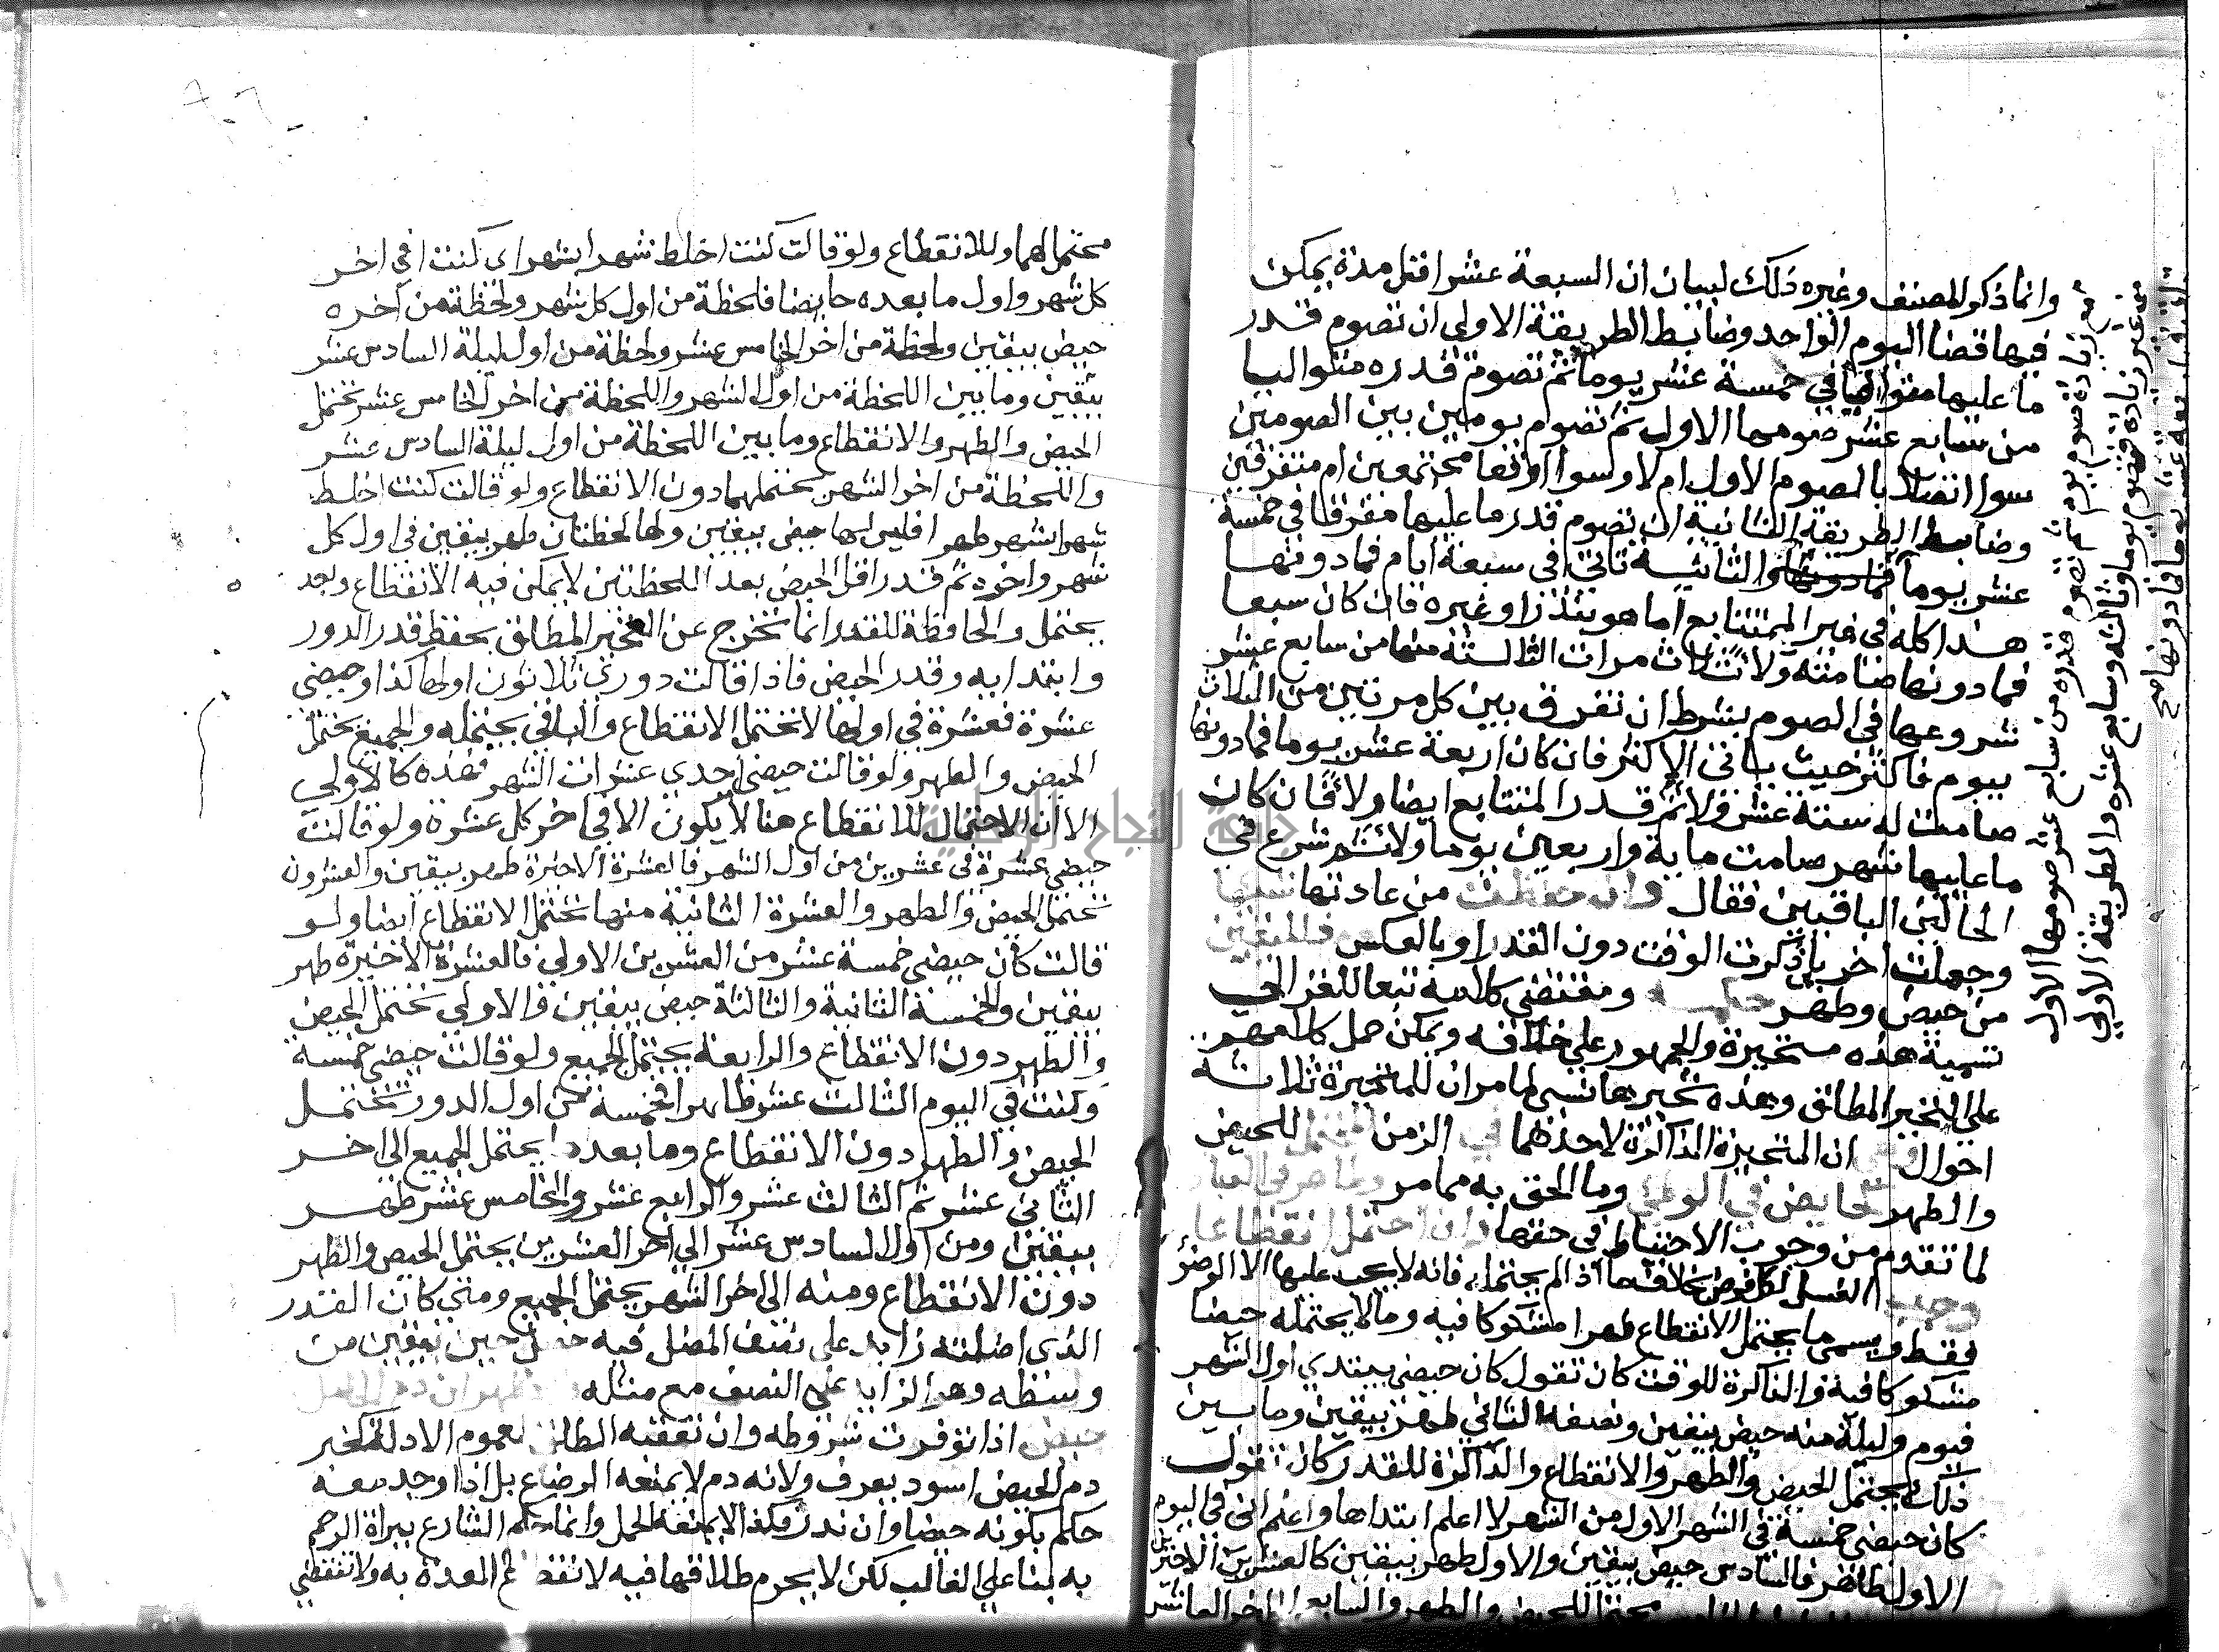 وانما ذكر المصنف وغيره ذلك لبيان ان السبعة عشر اقل مدة يمكن
فيها قضا اليوم الواحد وضابط الطريقة الاولى ان تصوم قدر
ما عليها متواليا في خمسة عشر يوما ثم تصوم قدره متواليا
من سابع عشر صومها الاول ثم تصوم يومين بين الصومين
سوا اتصلا بالصوم الاول ام لا وسوا اوقعا مجتمعين ام متفرقين
وضابط الطريقة الثانية ان تصوم قدر ما عليها متفرقا في خمسة
عشر يوما والثانية تاتي في سبعة ايام فما دونها
هذا كله في غير المتتابع اما هو بنذر او غيره فان كان سبعا
فما دونها صامته ولا ثلاث مرات الثالثة منها من سابع عشر
شروعها في الصوم بشرط ان تفرق بين كل مرتين من الثلاث
بيوم فاكثر حيث ياتي الاكثر فان كان اربعة عشر يوما فما دونها
صامت له ستة عشر ولا ثم قدر المتتابع ايضا ولا فان كان
ما عليها شهر صامت ماية واربعين يوما ولا ثم شرع في
الحالين الباقيين فقال وان حفظت من عادتها شيئا
وجهلت اخر بان ذكرت الوقت دون القدر او بالعكس فلليقين
من حيض وطهر حكمه ومقتضى كلامه تبعا للغزالي
تسمية هذه متحيرة والجمهور على خلافه ويمكن حمل كلامهم
على التحير المطلق وهذه تحيرها نسبي لما مر ان للمتحيرة ثلاثة
احوال ان المتحيرة الذاكرة لاحدهما في الزمن المحتمل للحيض
والطهر كحايض في الوطئ وما الحق به مما مر وطاهر في العباد
لما تقدم من وجوب الاحتياط في حقها وان احتمل انقطاعا
وجب الغسل لكل فرض بخلاف ما اذا لم يحتمله فانه لا يجب عليها الا الوضؤ
فقط ويسمى ما يحتمل الانقطاع طهرا مشكوكا فيه وما لا يحتمله حيضا
مشكوكا فيه والذاكرة للوقت كان تقول كان حيضي يبتدي اول الشهر
فيوم وليلة منه حيض بيقين ونصفه الثاني طهر بيقين وما بين
ذلك يحتمل الحيض والطهر والانقطاع والذاكرة للقدر كان تقول
كان حيضي خمسة في الشهر الاول من الشهر لا اعلم ابتداها واعلم اني في اليوم
الاول طاهر فالسادس حيض بيقين والاول طهر بيقين كالعشرين الاخيرين
محتمل للحيض والطهر والسابع الى اخر العاشر
ثم ان زاد تصوم يوم ثم تصوم قدره من سابع عشر صومها الاول
من غير زيادة فتصوم يوما وثالثه وسابع عشره والطريقة الاولى
يوما فما دونها صح
محتمل لهما وللانقطاع ولو قالت كنت اخلط شهرا بشهر اي كنت في اخر
كل شهر واول ما بعده حايضا فلحظة من اول كل شهر ولحظة من اخره
حيض بيقين ولحظة من اخر الخامس عشر ولحظة من اول ليلة السادس عشر
بيقين وما بين اللحظة من اول الشهر واللحظة من اخر الخامس عشر تحتمل
الحيض والطهر والانقطاع وما بين اللحظة من اول ليلة السادس عشر
واللحظة من اخر الشهر يحتملهما دون الانقطاع ولو قالت كنت اخلط
شهرا بشهر طهرا فليس لها حيض بيقين ولها لحظتان طهر بيقين في اول كل
شهر واخره ثم قدر اقل الحيض بعد اللحظتين لا يمكن فيه الانقطاع وبعد
يحتمل والحافظة للقدر انما تخرج عن التحير المطلق بحفظ قدر الدور
وابتدايه وقدر الحيض فاذا قالت دوري ثلاثون اولها كذا وحيضي
عشرة فعشرة في اولها لا تحتمل الانقطاع والباقي يحتمله والجميع يحتمل
الحيض والطهر ولو قالت حيضي احدى عشرات الشهر فهذه كالاولى
الا ان الاحتمال للانقطاع هنا لا يكون الا في اخر كل عشرة ولو قالت
حيضي عشرة في عشرين من اول الشهر فالعشرة الاخيرة طهر بيقين والعشرون
تحتمل الحيض والطهر والعشرة الثانية منها تحتمل الانقطاع ايضا ولو
قالت كان حيضي خمسة عشر من العشرين الاولى فالعشرة الاخيرة طهر
بيقين والخمسة الثانية والثالثة حيض بيقين والاولى تحتمل الحيض
والطهر دون الانقطاع والرابعة يحتمل الجميع ولو قالت حيضي خمسة
وكنت في اليوم الثالث عشر طاهرا فخمسة من اول الدور تحتمل
الحيض والطهر دون الانقطاع وما بعده يحتمل الجميع الى اخر
الثاني عشر ثم الثالث عشر والرابع عشر والخامس عشر طهر
بيقين ومن اول السادس عشر الى اخر العشرين يحتمل الحيض والطهر
دون الانقطاع ومنه الى اخر الشهر يحتمل الجميع ومتى كان القدر
الذي اضلته زايد على نصف المضل فيه حصل حيض بيقين من
وسطه وهو الزايد على النصف مع مثله والاظهر ان دم الحامل
حيض اذا توفرت شروطه وان تعقبه الطلق لعموم الادلة كخبر
دم الحيض اسود يعرف ولانه دم لا يمنعه الرضاع بل اذا وجد معه
حكم بكونه حيضا وان ندر فكذا لا يمنعه الحمل وانما حكم الشارع ببراة الرحم
به بنا على الغالب لكن لا يحرم طلاقها فيه لانقضا العدة به ولا تنقضي
جامعة النجاح الوطنية